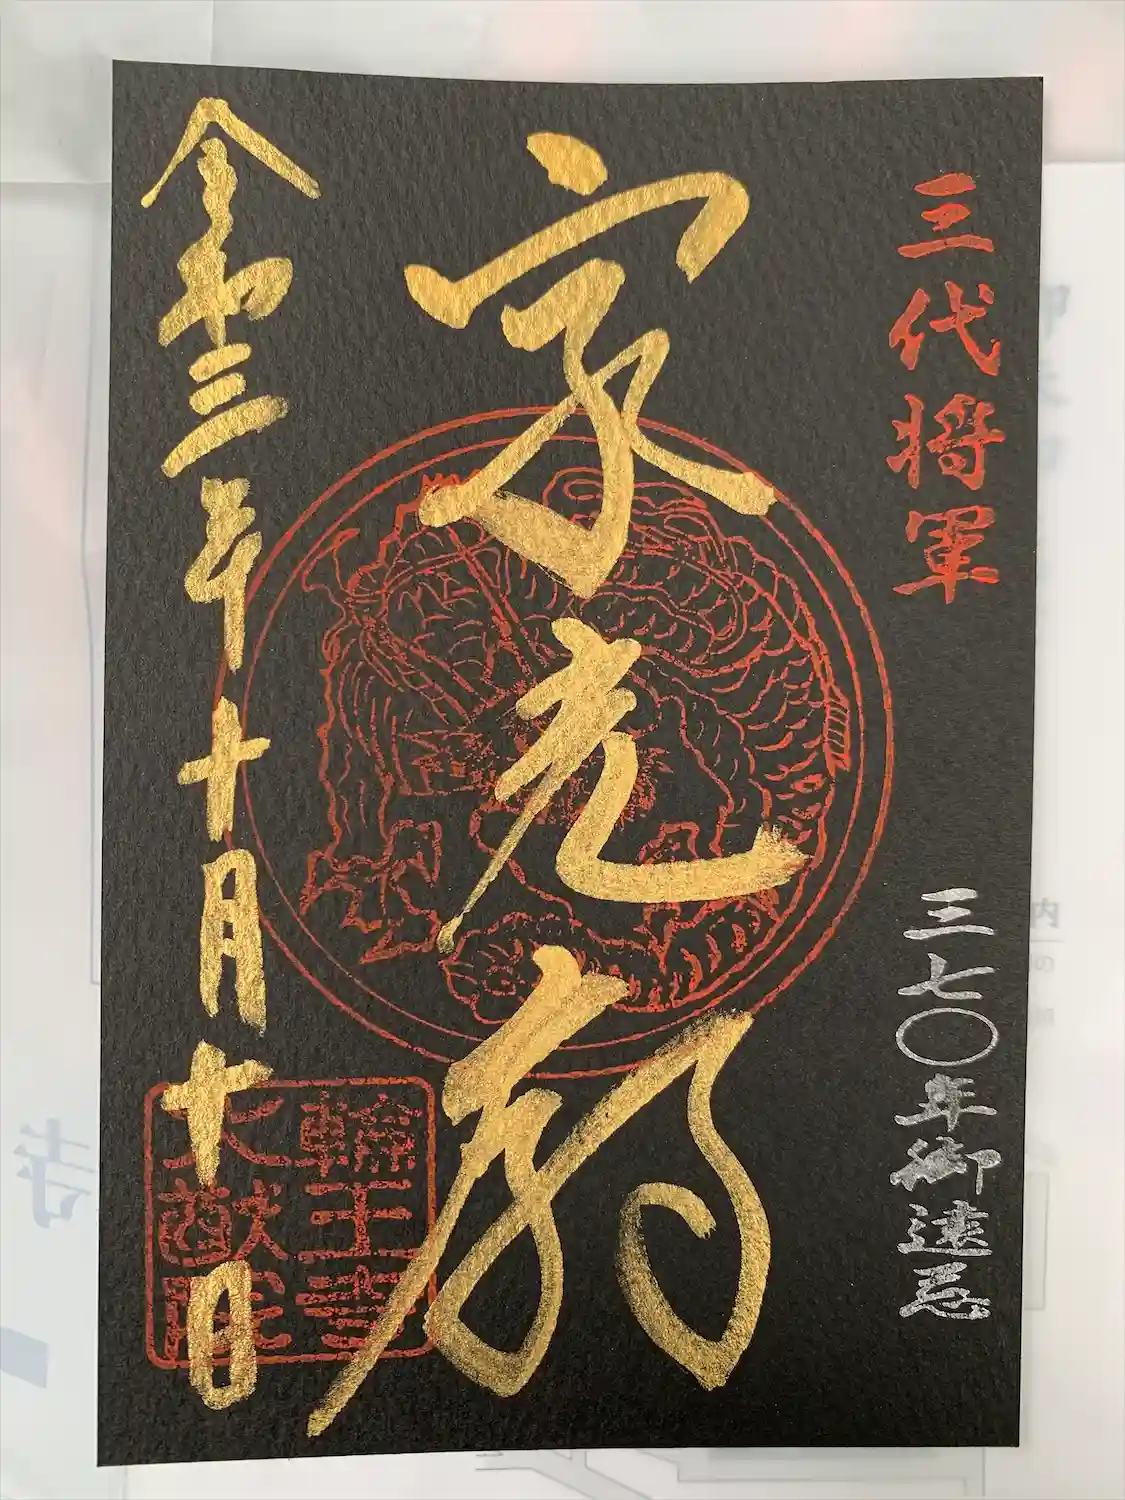 三代将軍
三七〇年御遠忌
家光廟
令和三年十月十日
輪王寺
大猷院
内
の
寺